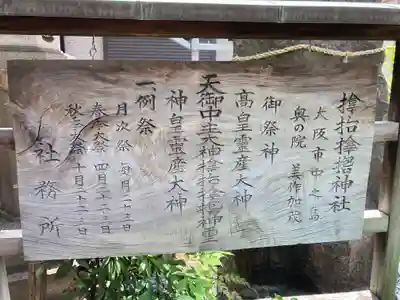 大阪市中之島
奥の院 美作加茂
御祭神
高皇霊産大神
天御中主大神
神皇霊産大神
一、例祭
月次祭 毎月二十三日
春季大祭 四月二十三日
秋季大祭 十月二十三日
社務所